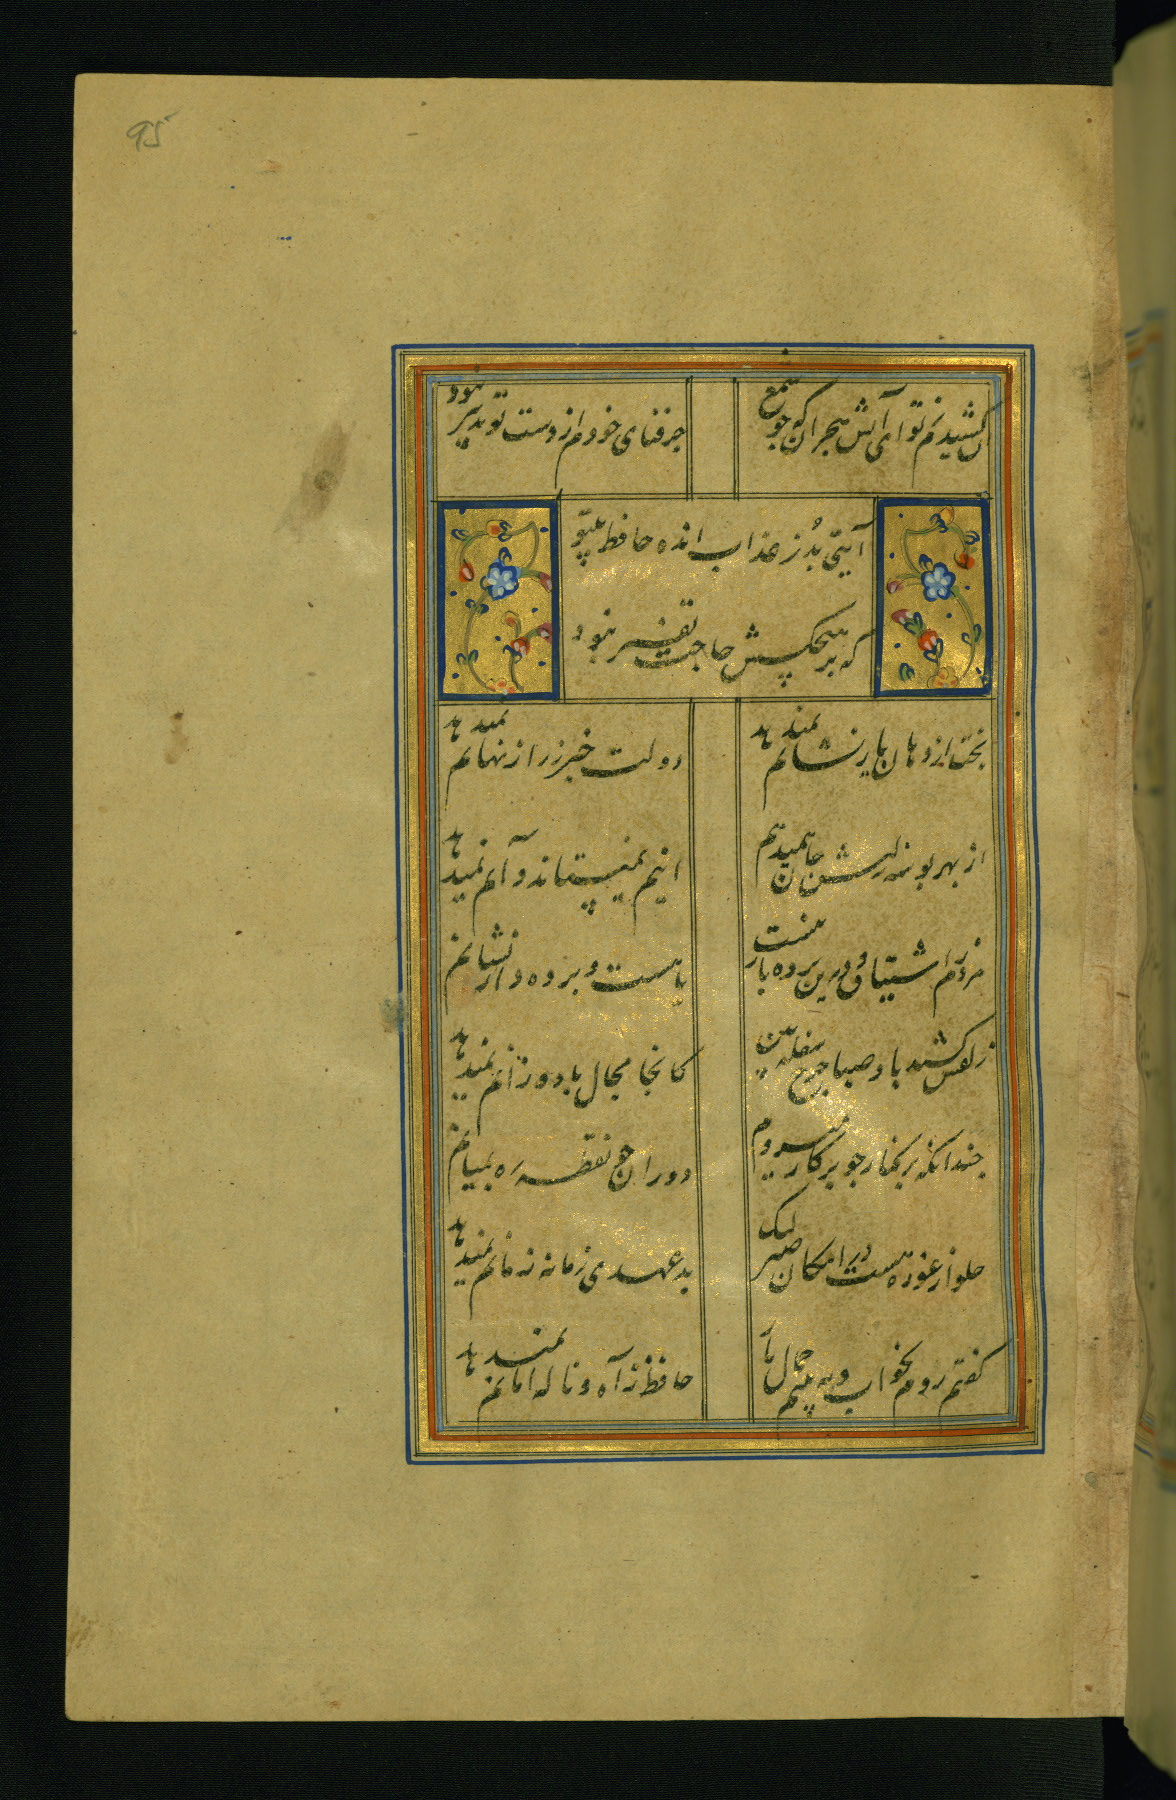 95
آن کشیدم ز تو ای آتش هجران که چو شمع
جز فنای خودم از دست تو تدبیر نبود
آیتی بُد ز عذاب انده حافظ بی تو
که بر هیچکسش حاجت تفسیر نبود
بخت از دهان یار نشانم نمیدهد
دولت خبر ز راز نهانم نمیدهد
از بهر بوسه ز لبش جان همیدهم
اینم نمیستاند و آنم نمیدهد
مردم ز اشتیاق و درین پرده بار نیست
یا هست و پرده دار نشانم نمیدهد
زلفش کشید باد صبا چرخ سفله بین
کانجا مجال باد وزانم نمیدهد
چندانکه بر کنار چو پرکار میروم
دوران چو نقطه ره بمیانم نمیدهد
حلوا ز غوره است در امکان صبر لیک
بد عهدی زمانه زمانم نمیدهد
گفتم روم بخواب و به بینم جمال یار
حافظ ز آه و ناله امانم نمیدهد